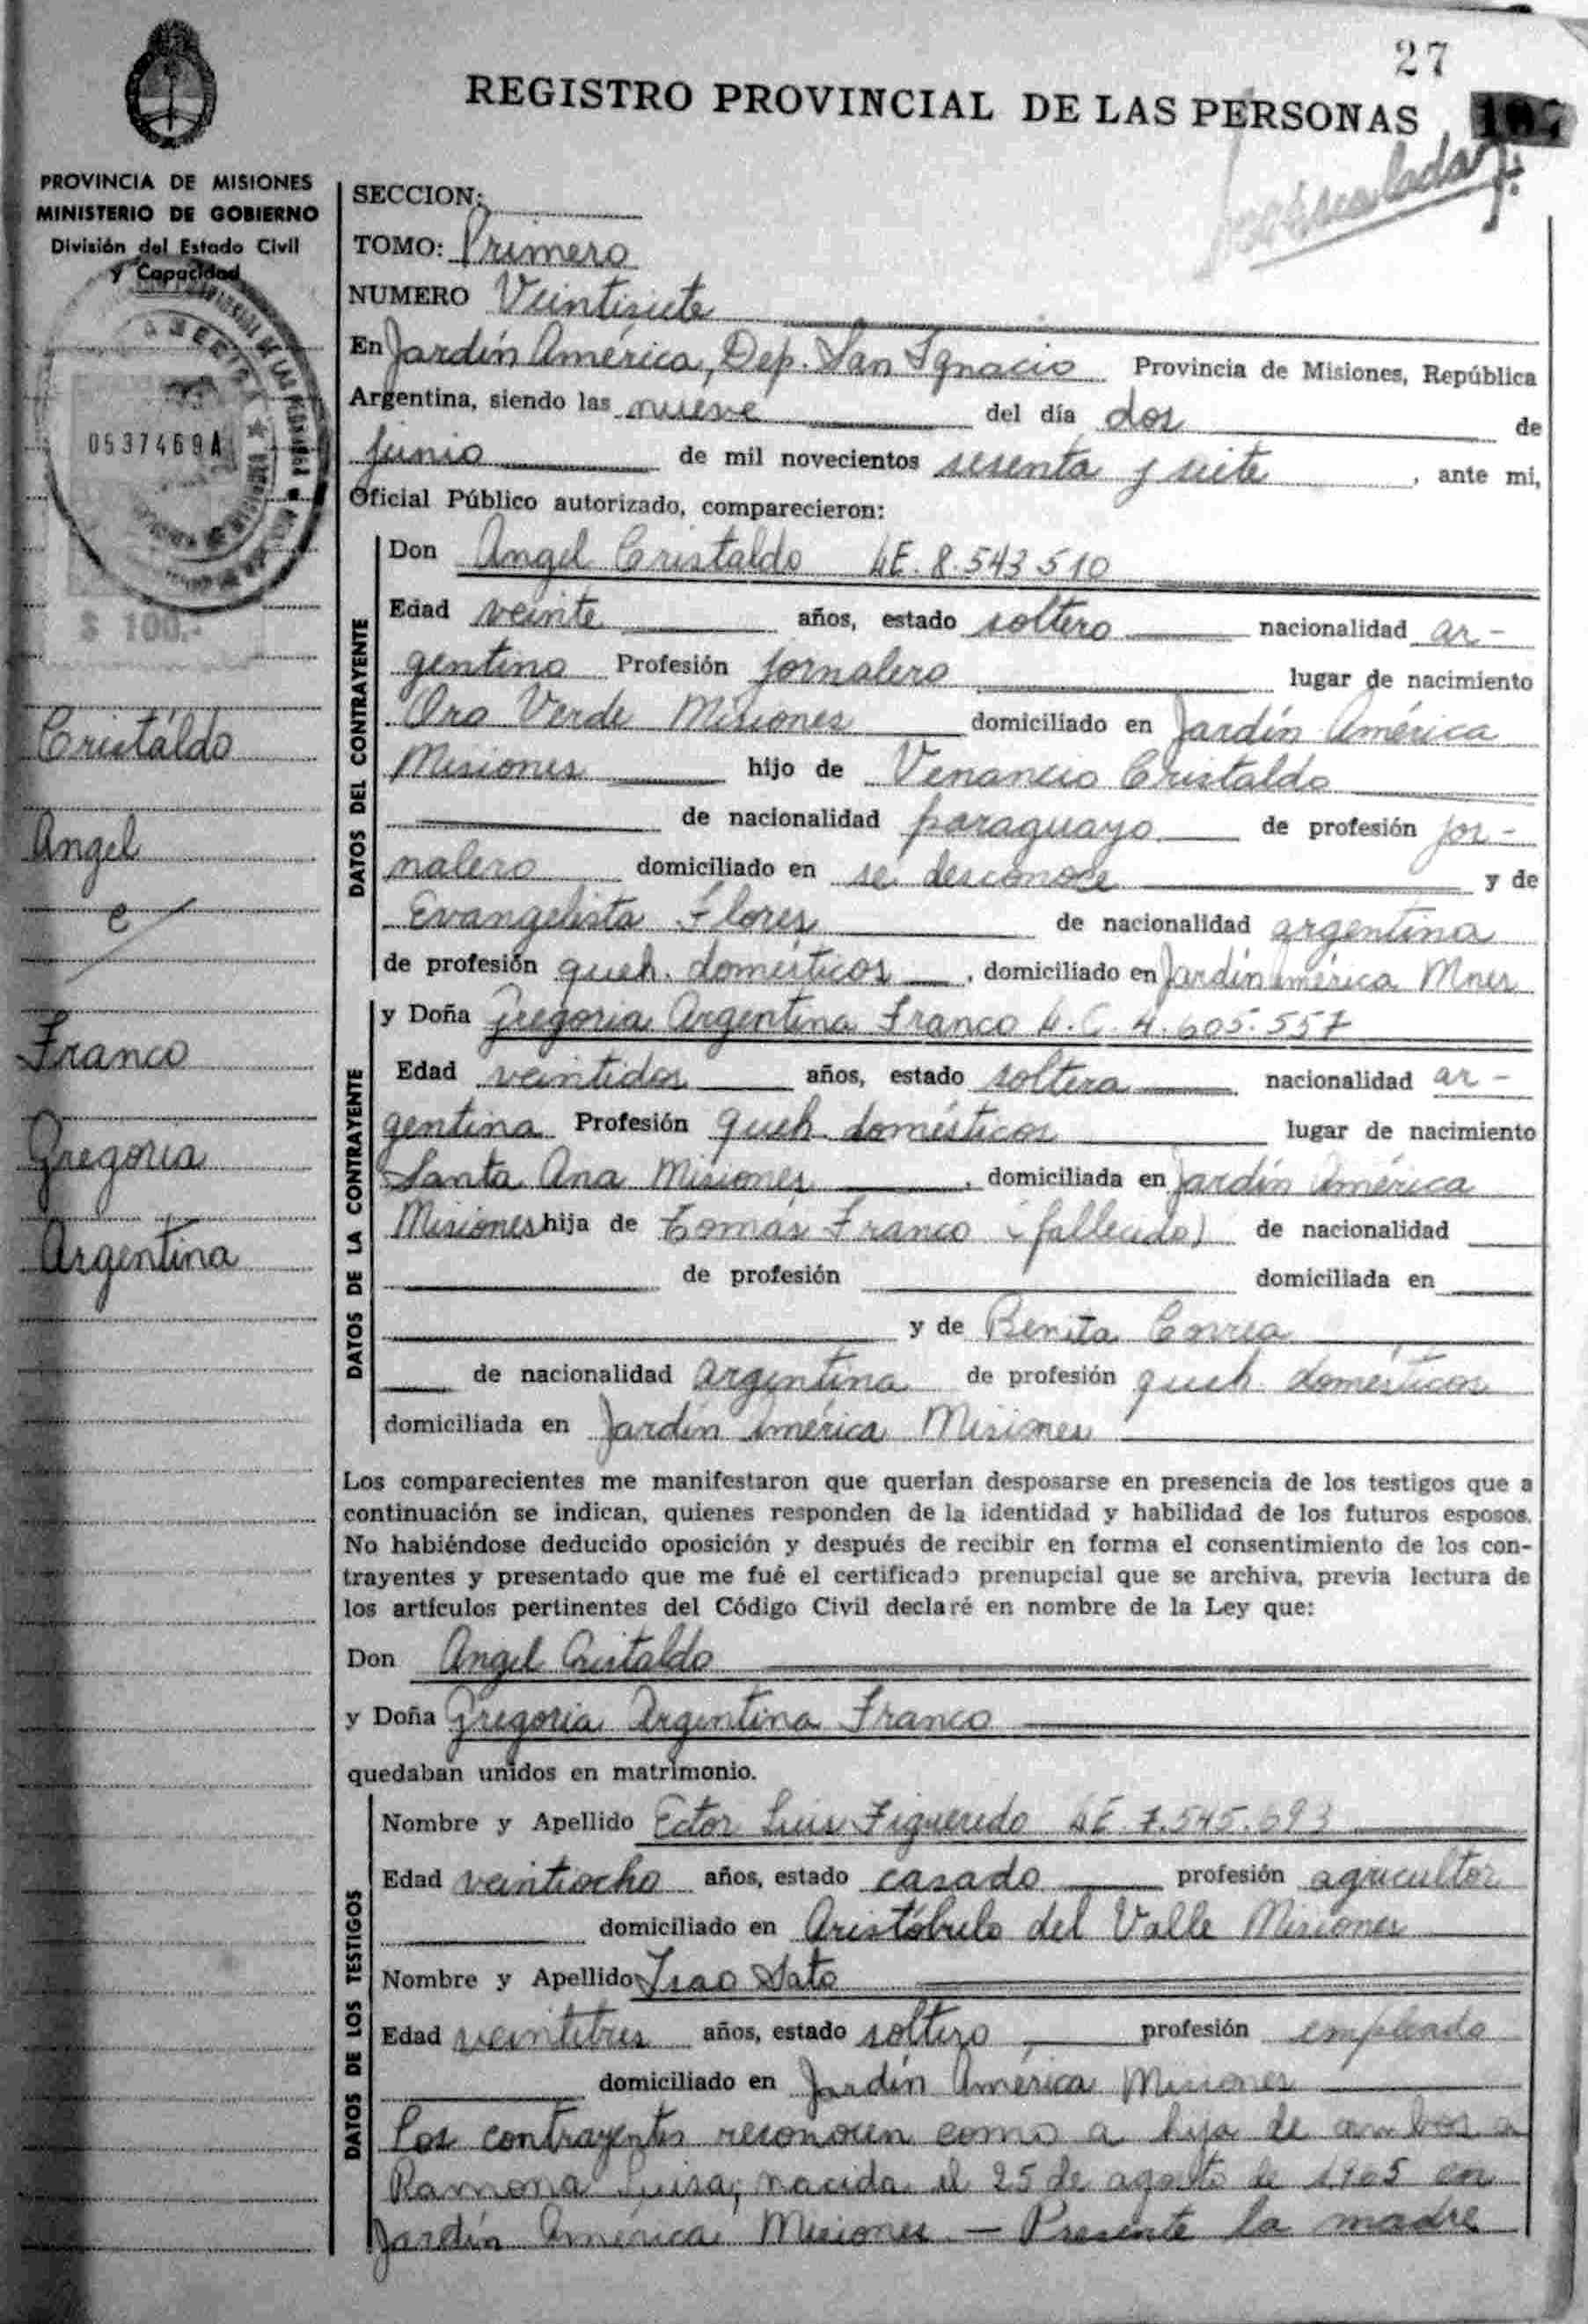 27
REGISTRO PROVINCIAL DE LAS PERSONAS
PROVINCIA DE MISIONES
MINISTERIO DE GOBIERNO
División del Estado Civil
y Capacidad
0537469A
$ 100.-
Cristaldo
Angel
e
Franco
Gregoria
Argentina
SECCION:
TOMO: Primero
NUMERO Veintisiete
En Jardín América, Dep. San Ignacio Provincia de Misiones, República
Argentina, siendo las nueve del día dos de
junio de mil novecientos sesenta y siete, ante mi,
Oficial Público autorizado, comparecieron:
DATOS DEL CONTRAYENTE
Don Angel Cristaldo LE. 8.543.510
Edad veinte años, estado soltero nacionalidad ar-
gentino Profesión jornalero lugar de nacimiento
Oro Verde Misiones domiciliado en Jardín América
Misiones hijo de Venancio Cristaldo
de nacionalidad paraguayo de profesión jor-
nalero domiciliado en se desconoce y de
Evangelista Flores de nacionalidad argentina
de profesión queh. domésticos, domiciliado en Jardín América Mnes
DATOS DE LA CONTRAYENTE
y Doña Gregoria Argentina Franco L.C. 4.605.557
Edad veintidos años, estado soltera nacionalidad ar-
gentina Profesión queh. domésticos lugar de nacimiento
Santa Ana Misiones, domiciliada en Jardín América
Misiones hija de Tomás Franco (fallecido) de nacionalidad
de profesión domiciliada en
y de Benita Correa
de nacionalidad argentina de profesión queh. domésticos
domiciliada en Jardín América Misiones
Los comparecientes me manifestaron que querían desposarse en presencia de los testigos que a
continuación se indican, quienes responden de la identidad y habilidad de los futuros esposos.
No habiéndose deducido oposición y después de recibir en forma el consentimiento de los con-
trayentes y presentado que me fué el certificado prenupcial que se archiva, previa lectura de
los artículos pertinentes del Código Civil declaré en nombre de la Ley que:
Don Angel Cristaldo
y Doña Gregoria Argentina Franco
quedaban unidos en matrimonio.
DATOS DE LOS TESTIGOS
Nombre y Apellido Ector Luis Figueredo LE. 7.545.693
Edad veintiocho años, estado casado profesión agricultor
domiciliado en Aristóbulo del Valle Misiones
Nombre y Apellido Isao Sato
Edad veintitres años, estado soltero profesión empleado
domiciliado en Jardín América Misiones
Los contrayentes reconocen como a hija de ambos a
Ramona Luisa, nacida el 25 de agosto de 1965 en
Jardín América Misiones. — Presente la madre